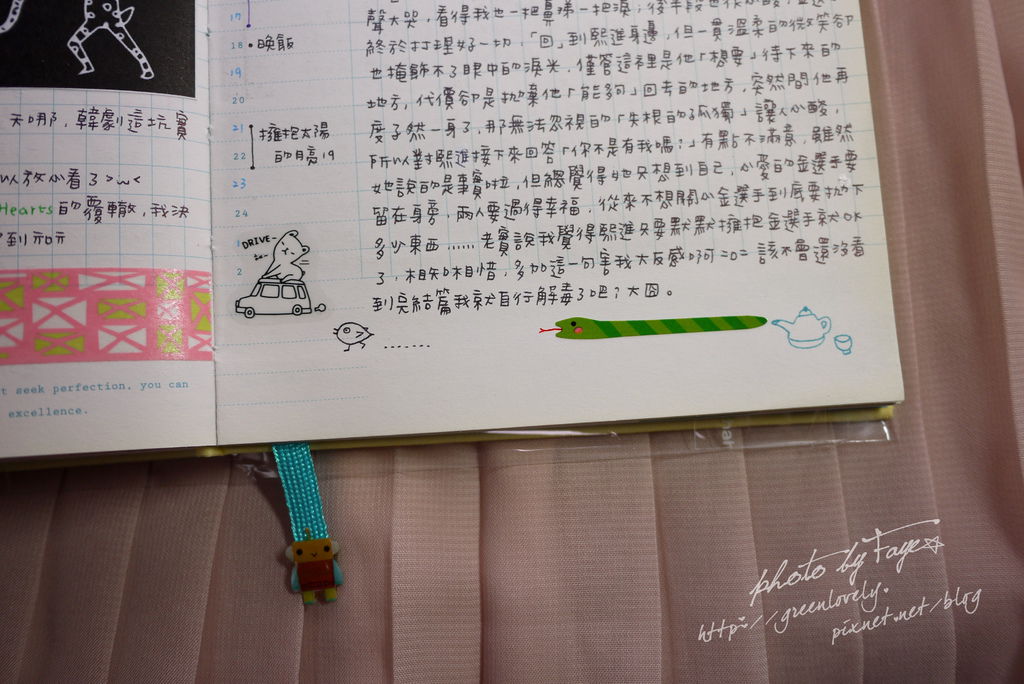 天哪,韓劇這坑實
以放心看了>"<
Hearts的覆轍,我決
了到元元
t seek perfection, you can
excellence.
17
18 • 晚飯
19
20
21 擁抱太陽
22 的月亮19
23
24
1
2
DRIVE~
聲大哭,看得我也一把鼻涕一把淚;後半段也很
終於打理好一切,「回」到熙進身邊,但一貫溫柔的微笑卻
也掩飾不了眼中的淚光,僅管這裡是他「想要」待下來的
地方,代價卻是拋棄他「能夠」回去的地方,突然間他再
度孑然一身了,那無法忽視的「失根的孤獨」讓人心酸,
所以對熙進接下來回答「你不是有我嗎?」有點不滿意,雖然
她說的是事實啦,但總覺得她只想到自己,心愛的金選手要
留在身旁,兩人要過得幸福,從來不想關心金選手到底要拋下
多少東西……老實說我覺得熙進只要默默擁抱金選手就OK
了,相知相惜,多加這一句害我大反感啊=口= 該不會還沒看
到完結篇我就自行解毒了吧?大囧。
.......
photo by Faye☆
http://greenlovely.
pixnet.net/blog